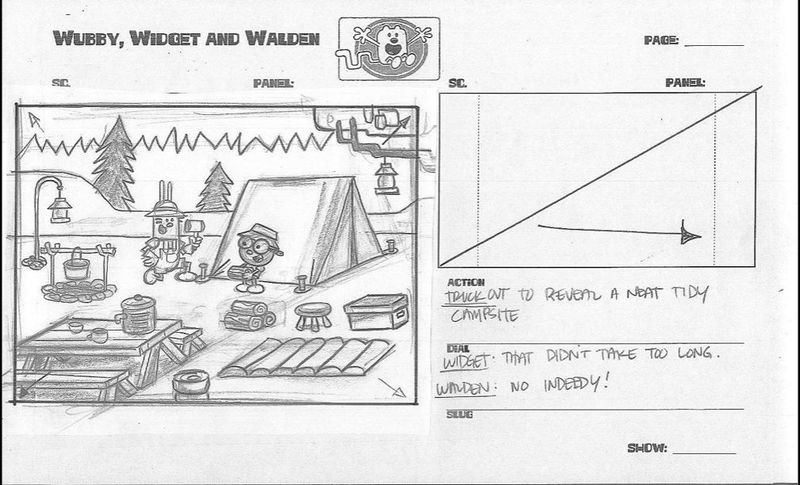 WUBBY, WIDGET AND WALDEN
PAGE:
SC.
PANEL:
SC.
PANEL:
ACTION
TRUCK OUT TO REVEAL A NEAT TIDY
CAMPSITE
DIAL
WIDGET: THAT DIDN'T TAKE TOO LONG.
WALDEN: NO INDEEDY!
SLUG
SHOW: